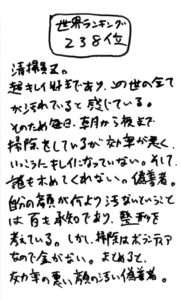 世界ランキング
238位
清掃員Z。
超キレイ好きであり、この世の全て
が汚れていると感じている。
そのため毎日、朝から夜まで
掃除をしているが効率が悪く、
いっこうにキレイになっていない。そして、
誰も求めてくれない。偽善者。
自分の顔が何より汚ないということ
は百も承知であり、整形を
考えている。しかし、掃除はボランティア
なので金がない。まとめると、
効率の悪い顔の汚い偽善者。